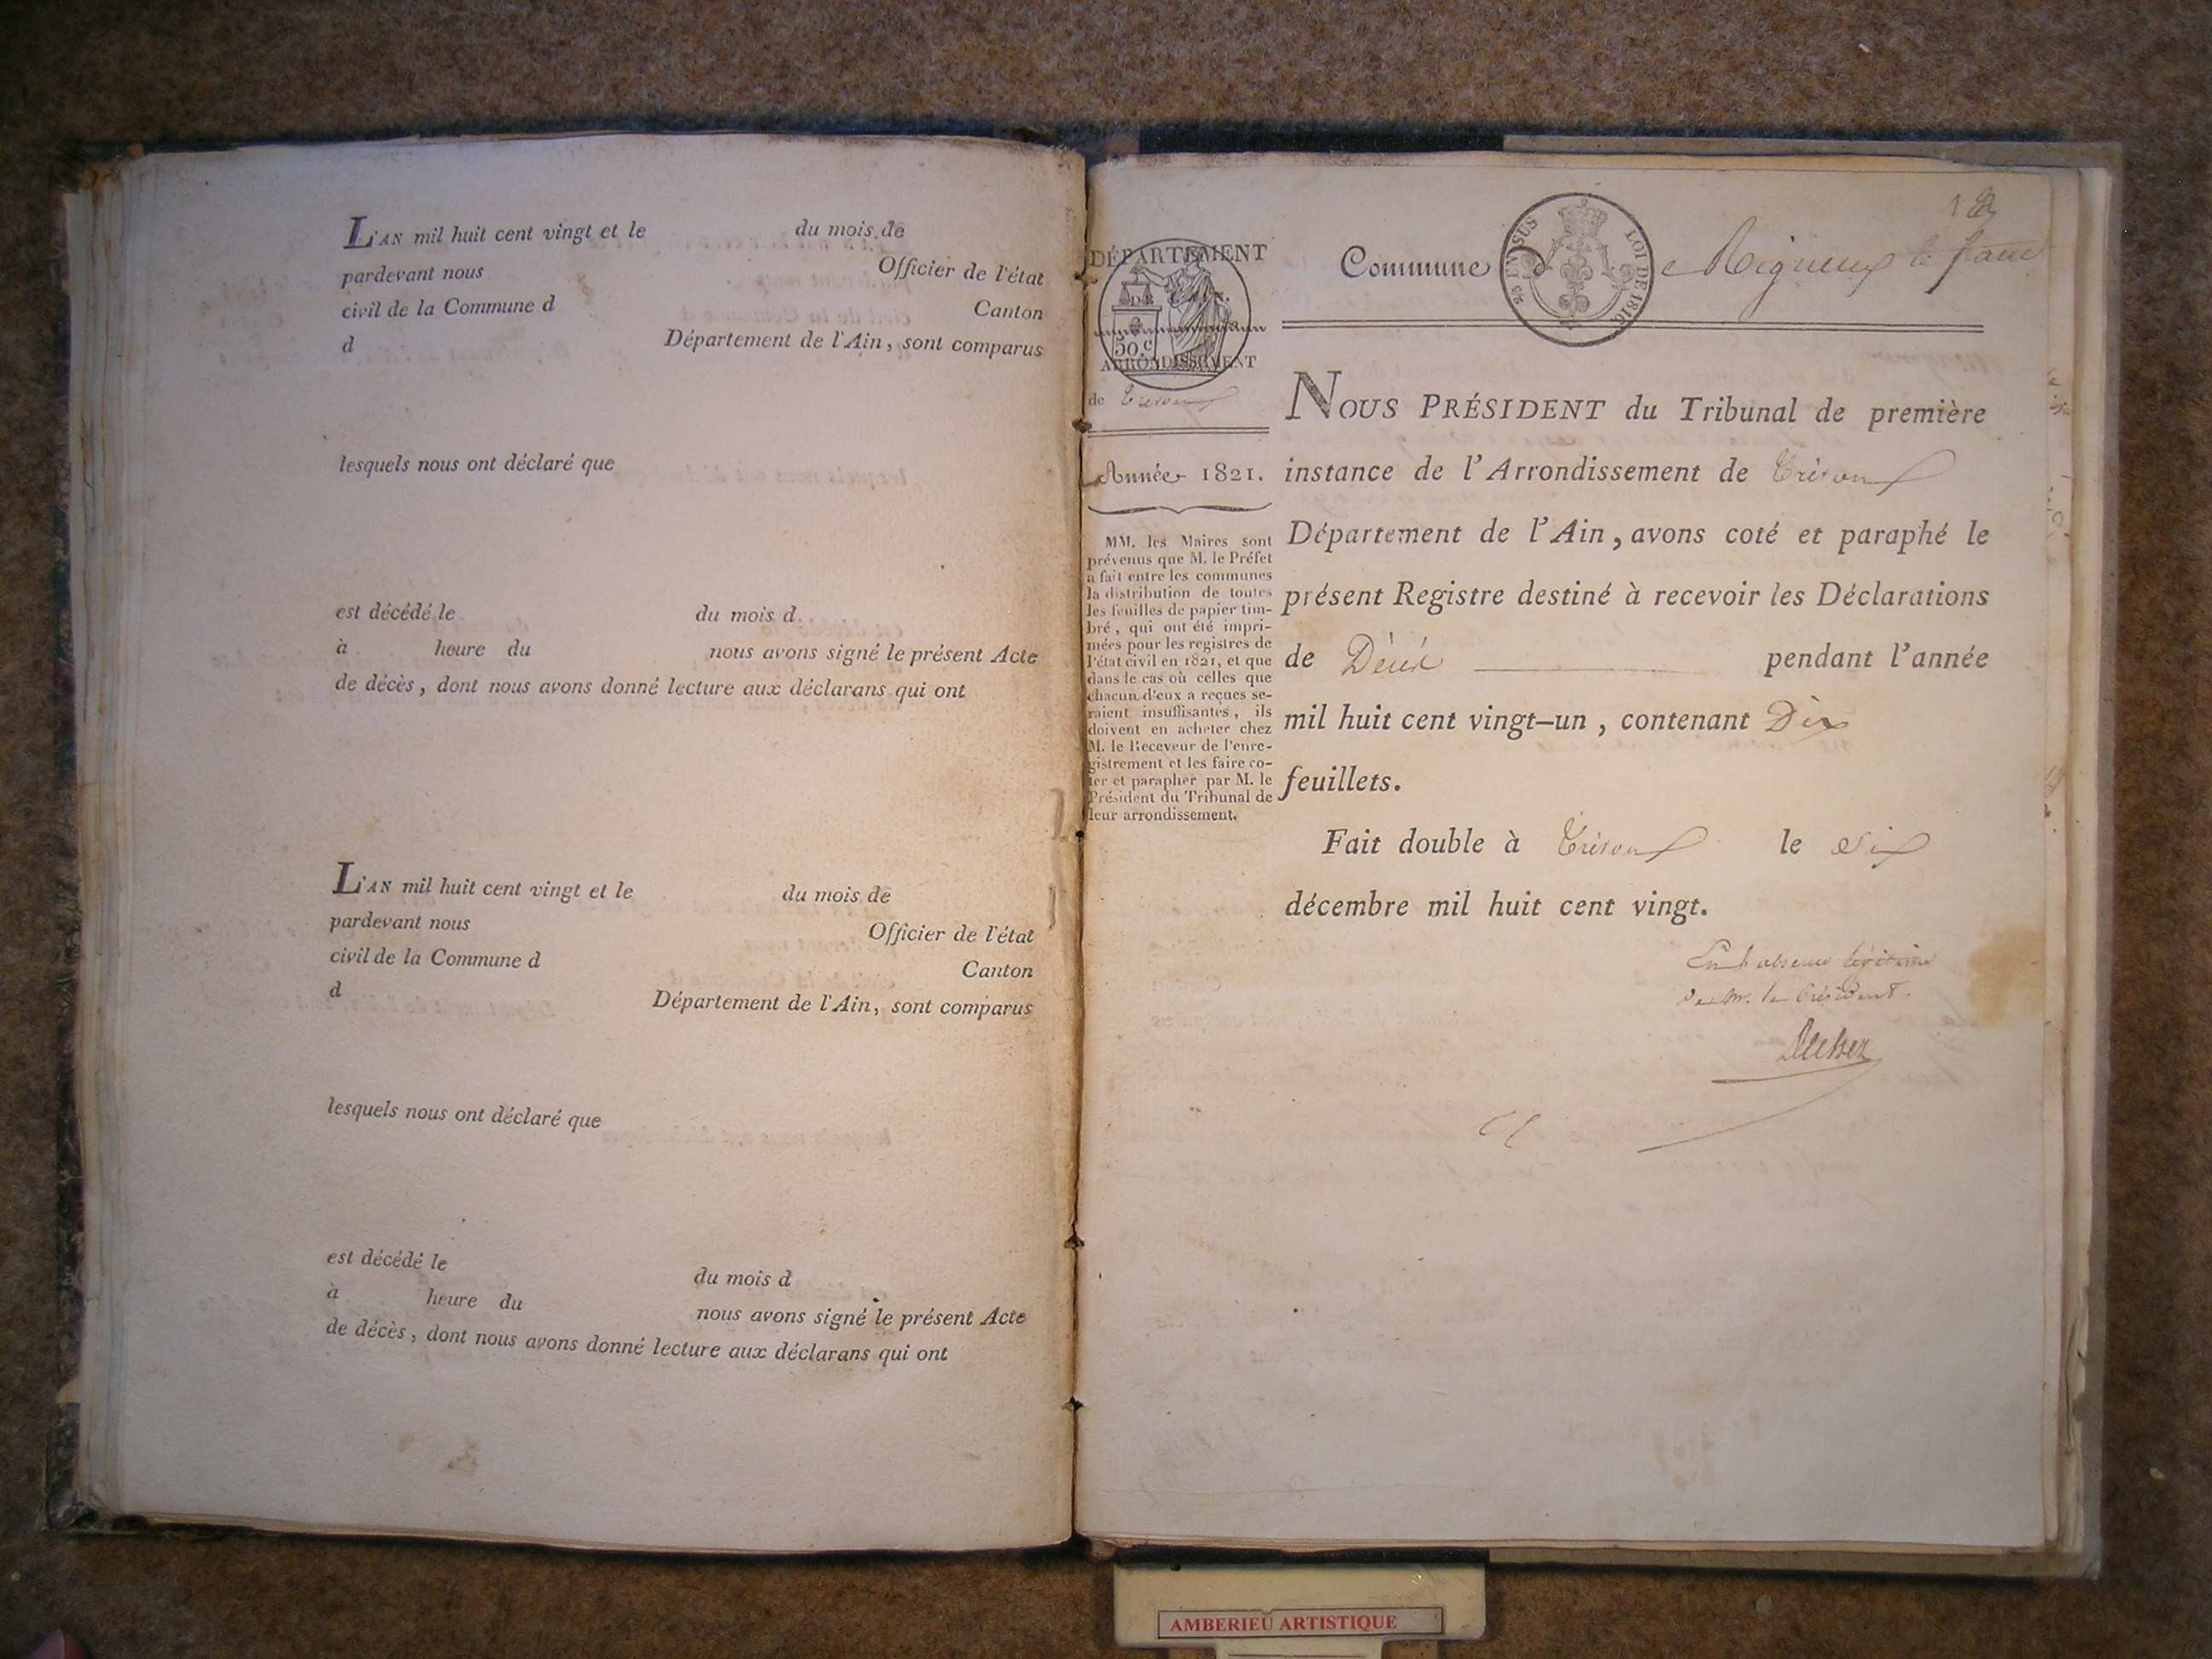 L'AN mil huit cent vingt et le du mois de
pardevant nous Officier de l'état
civil de la Commune d Canton
d Département de l'Ain, sont comparus
lesquels nous ont déclaré que
est décédé le du mois d
à heure du nous avons signé le présent Acte
de décès, dont nous avons donné lecture aux déclarans qui ont
L'AN mil huit cent vingt et le du mois de
pardevant nous Officier de l'état
civil de la Commune d Canton
d Département de l'Ain, sont comparus
lesquels nous ont déclaré que
est décédé le du mois d
à heure du nous avons signé le présent Acte
de décès, dont nous avons donné lecture aux déclarans qui ont
DÉPARTEMENT
DE L'AIN.
50.c
ARRONDISSEMENT
de Trévoux
Année 1821.
MM. les Maires sont
prévenus que M. le Préfet
a fait entre les communes
la distribution de toutes
les feuilles de papier tim-
bré, qui ont été impri-
mées pour les registres de
l'état civil en 1821, et que
dans le cas où celles que
chacun d'eux a reçues se-
raient insuffisantes, ils
doivent en acheter chez
M. le Receveur de l'enre-
gistrement et les faire co-
ter et parapher par M. le
Président du Tribunal de
leur arrondissement.
Commune de Rigneux le franc
LOI DE 1816.
NOUS PRÉSIDENT du Tribunal de première
instance de l'Arrondissement de Trévoux
Département de l'Ain, avons coté et paraphé le
présent Registre destiné à recevoir les Déclarations
de Décès pendant l'année
mil huit cent vingt-un, contenant Dix
feuillets.
Fait double à Trévoux le six
décembre mil huit cent vingt.
En l'absence légitime
de Mr. le Président.
AMBERIEU ARTISTIQUE